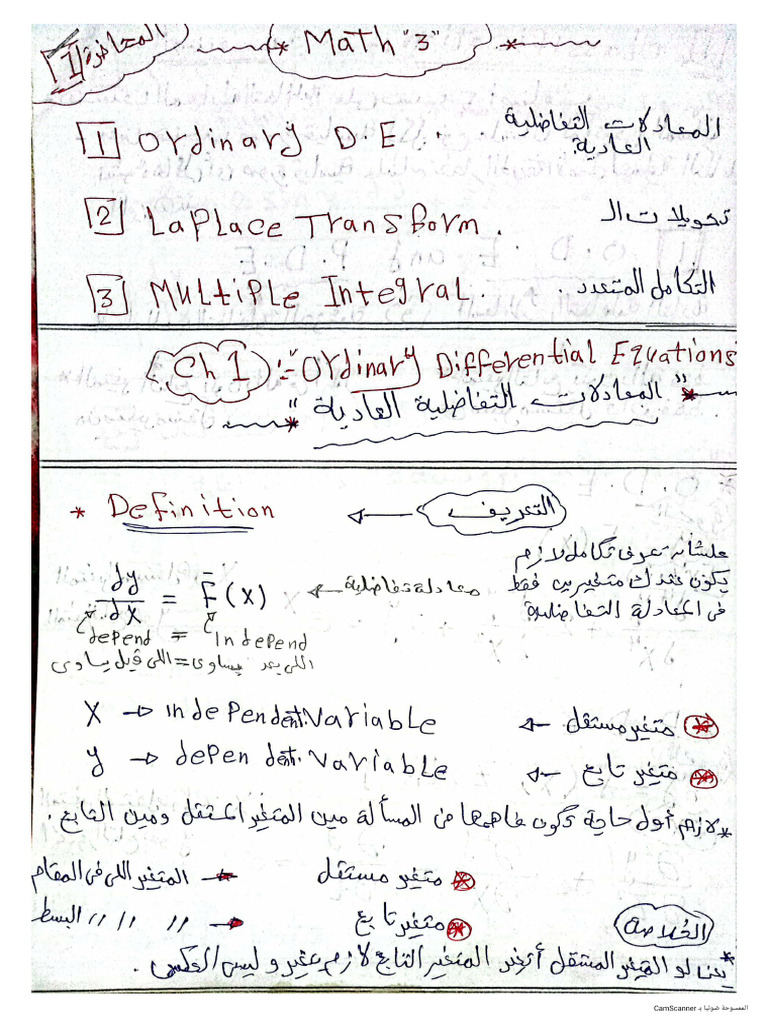 المحاضرة [1]
* Math "3" *
[1] Ordinary D.E. المعادلات التفاضلية العادية.
[2] LaPlace Transform. تحويلات الـ
[3] Multiple Integral. التكامل المتعدد.
Ch 1 :- Ordinary Differential Equations
* "المعادلات التفاضلية العادية" *
* Definition ← التعريف
علشان تعرف تكامل لازم
يكون عندك متغيرين فقط
فى المعادلة التفاضلية
dy/dx = F(x) ← معادلة تفاضلية
depend = independ
اللى بعد يساوى = اللى قبل يساوى
X → independent. Variable ← متغير مستقل *
y → dependent. Variable ← متغير تابع *
* لازم أول حاجة تكون فاهمها فى المسألة مين المتغير المستقل ومين التابع.
* متغير مستقل → المتغير اللى فى المقام
* متغير تابع → // // // البسط
الخلاصة
* لو المتغير المستقل أتغير المتغير التابع لازم يتغير وليس العكس.
الممسوحة ضوئيا بـ CamScanner